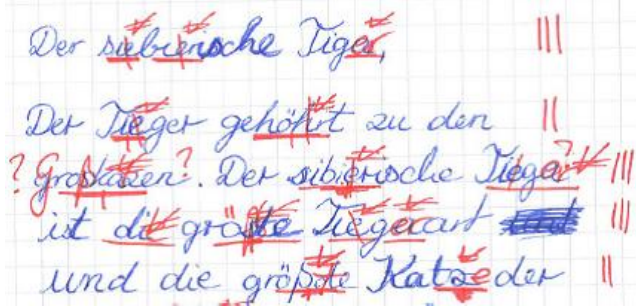 Der siebierische Tiger,
Der Tieger gehöhrt zu den
? Großkatzen?. Der sibierische Tieger
ist die größte Tiegerart
und die größte Katze der